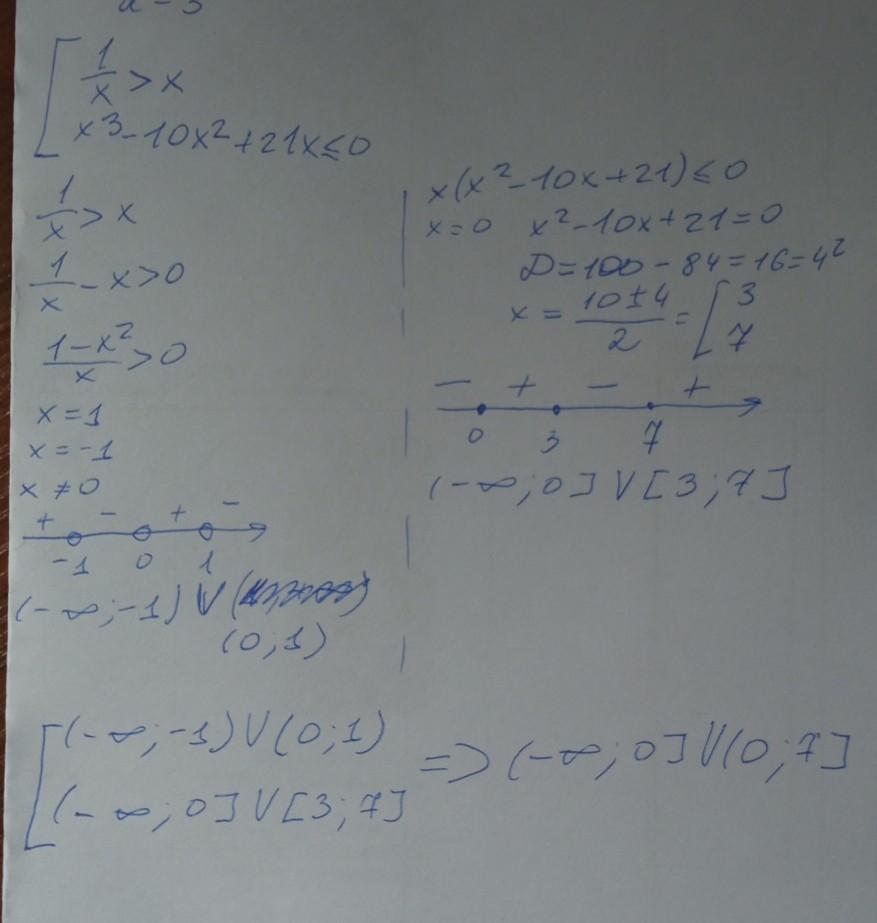 1/x > x
x³-10x²+21x≤0
1/x > x
1/x - x>0
(1-x²)/x >0
x=1
x=-1
x≠0
+ - + -
-1 0 1
(-∞;-1) V (
(0;1)
x(x²-10x+21)≤0
x=0 x²-10x+21=0
D=100-84=16=4²
x = (10±4)/2 = [ 3
7
- + - +
0 3 7
(-∞;0] V [3;7]
[ (-∞;-1) V (0;1)
(-∞;0] V [3;7]
=> (-∞;0] V (0;7]